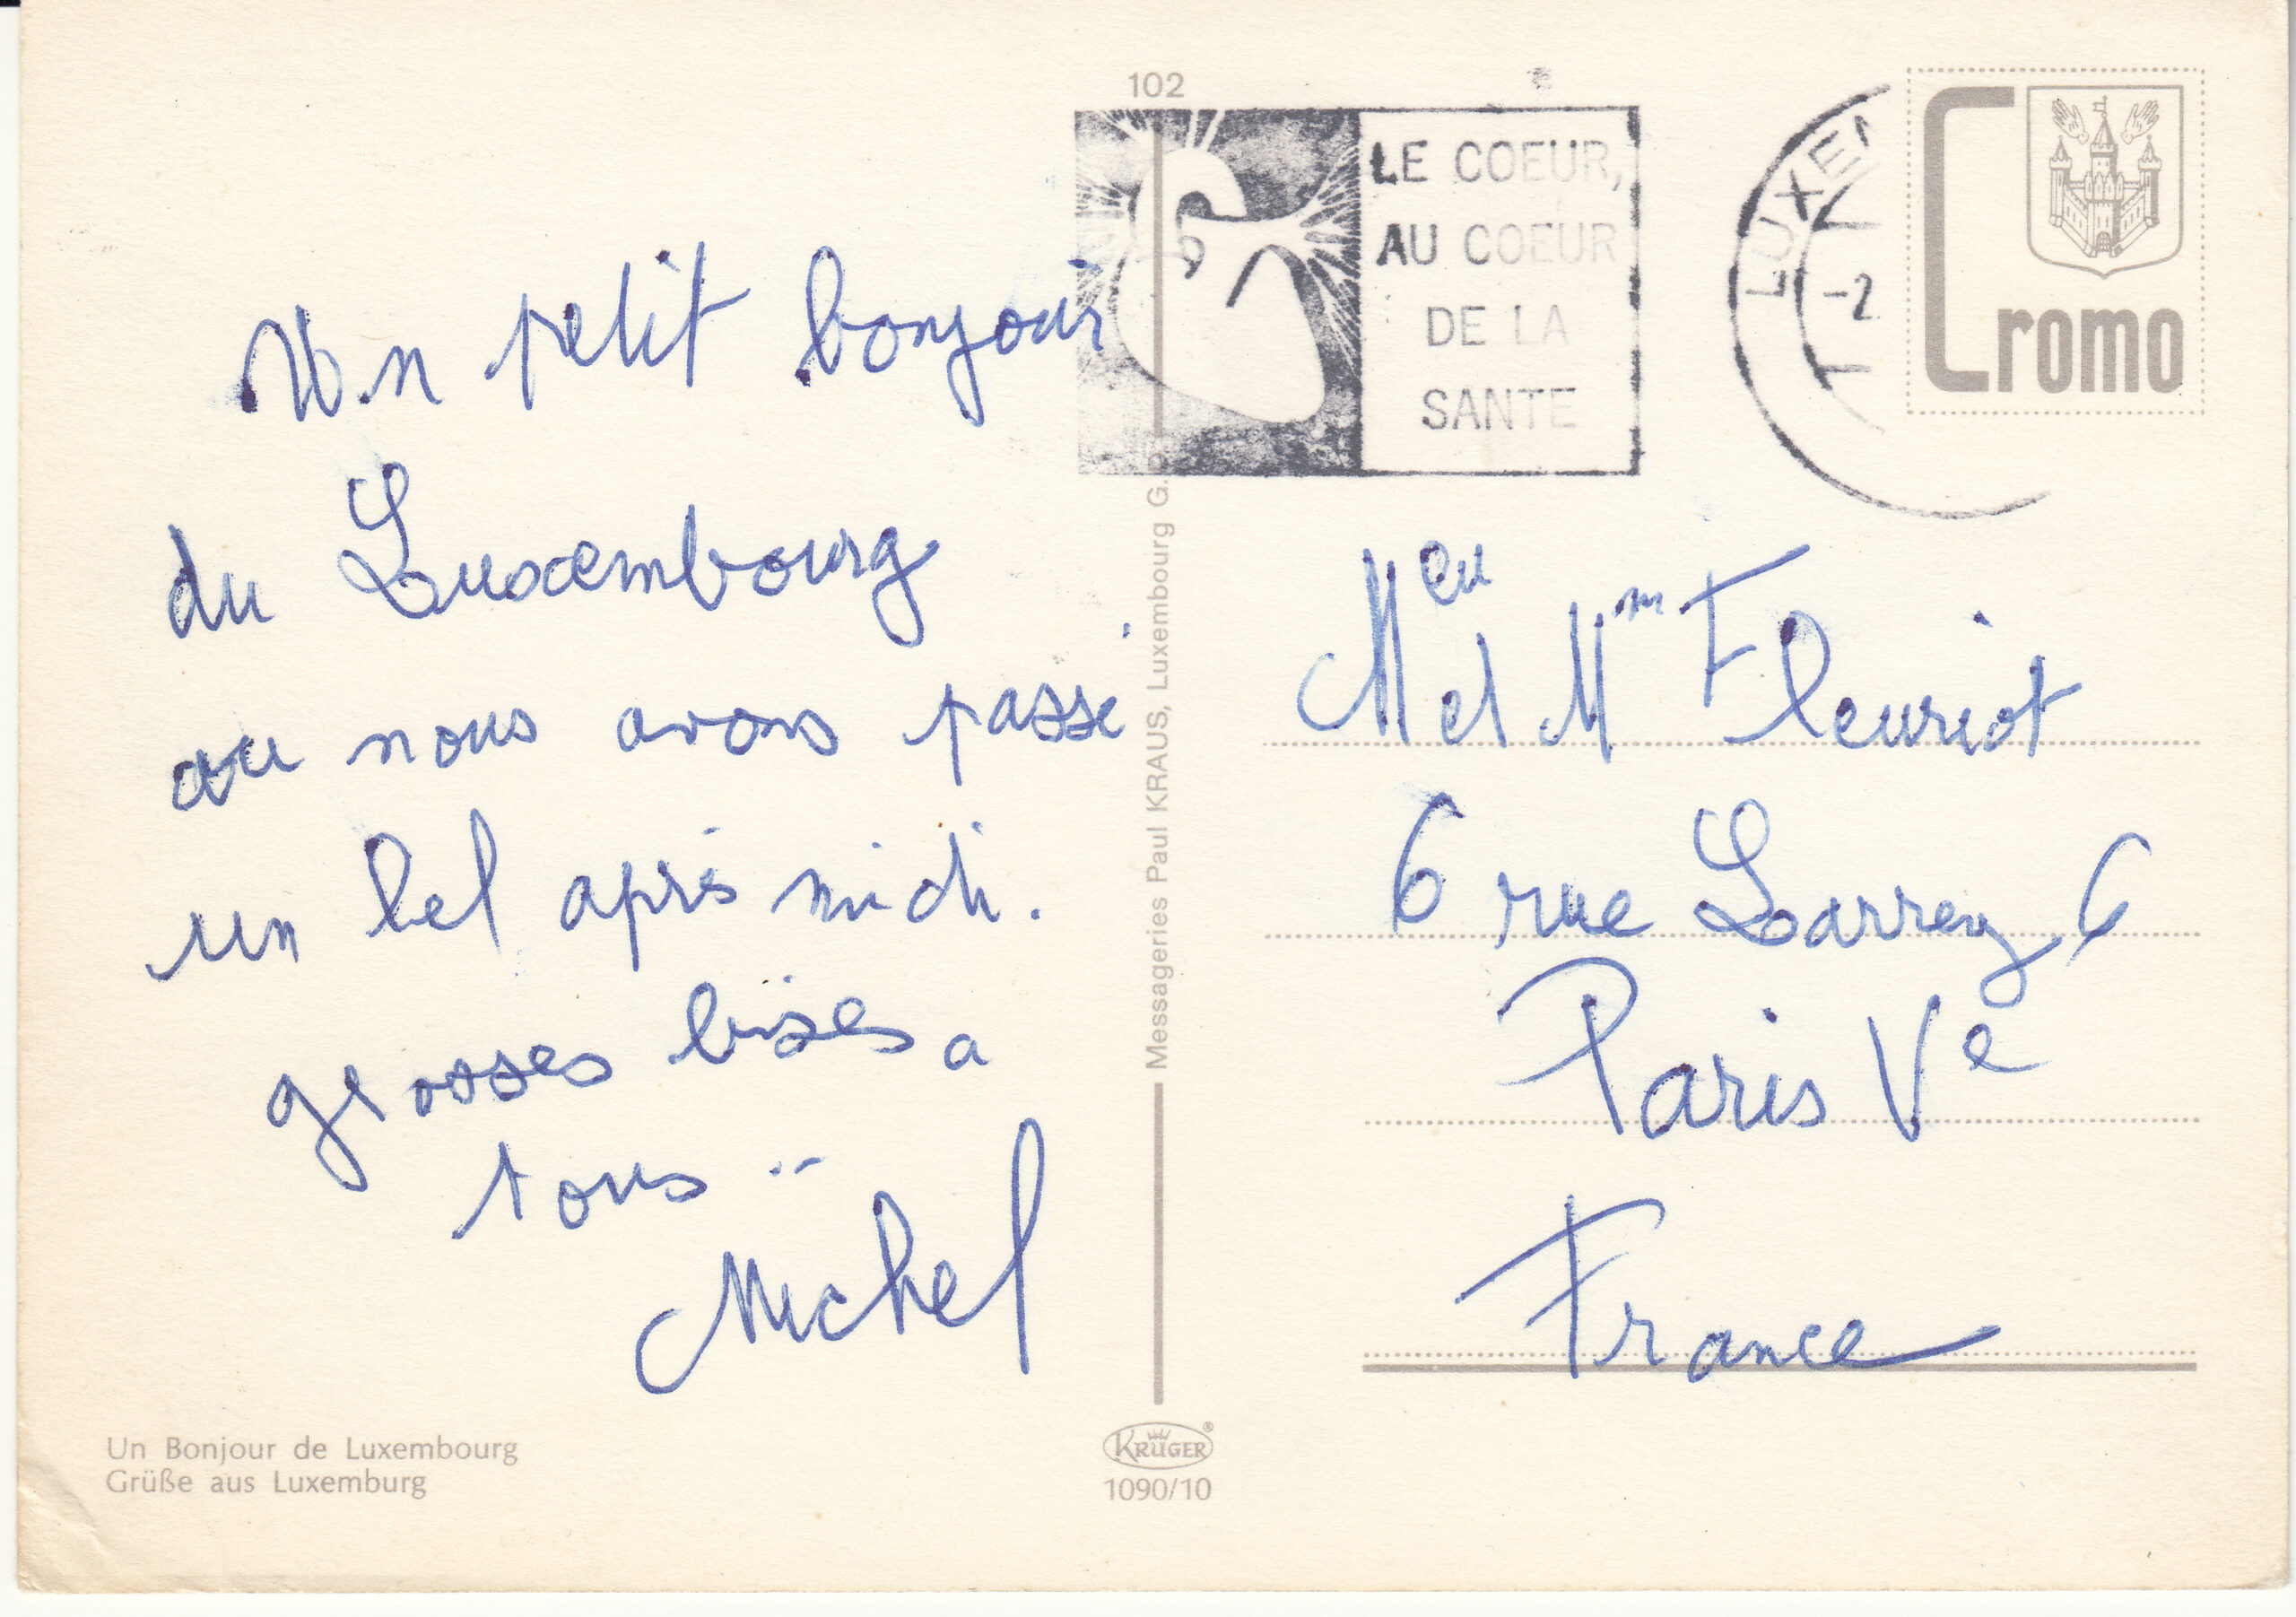 102
LE COEUR,
AU COEUR
DE LA
SANTE
LUXEM
-2
Cromo
Un petit bonjour
du Luxembourg
ou nous avons passé
un bel après midi.
grosses bises a
tous
Michel
Messageries Paul KRAUS, Luxembourg G.
Meu et Mm Fleuriot
6 rue Larrey 6
Paris Ve
France
Un Bonjour de Luxembourg
Grüße aus Luxemburg
KRÜGER®
1090/10